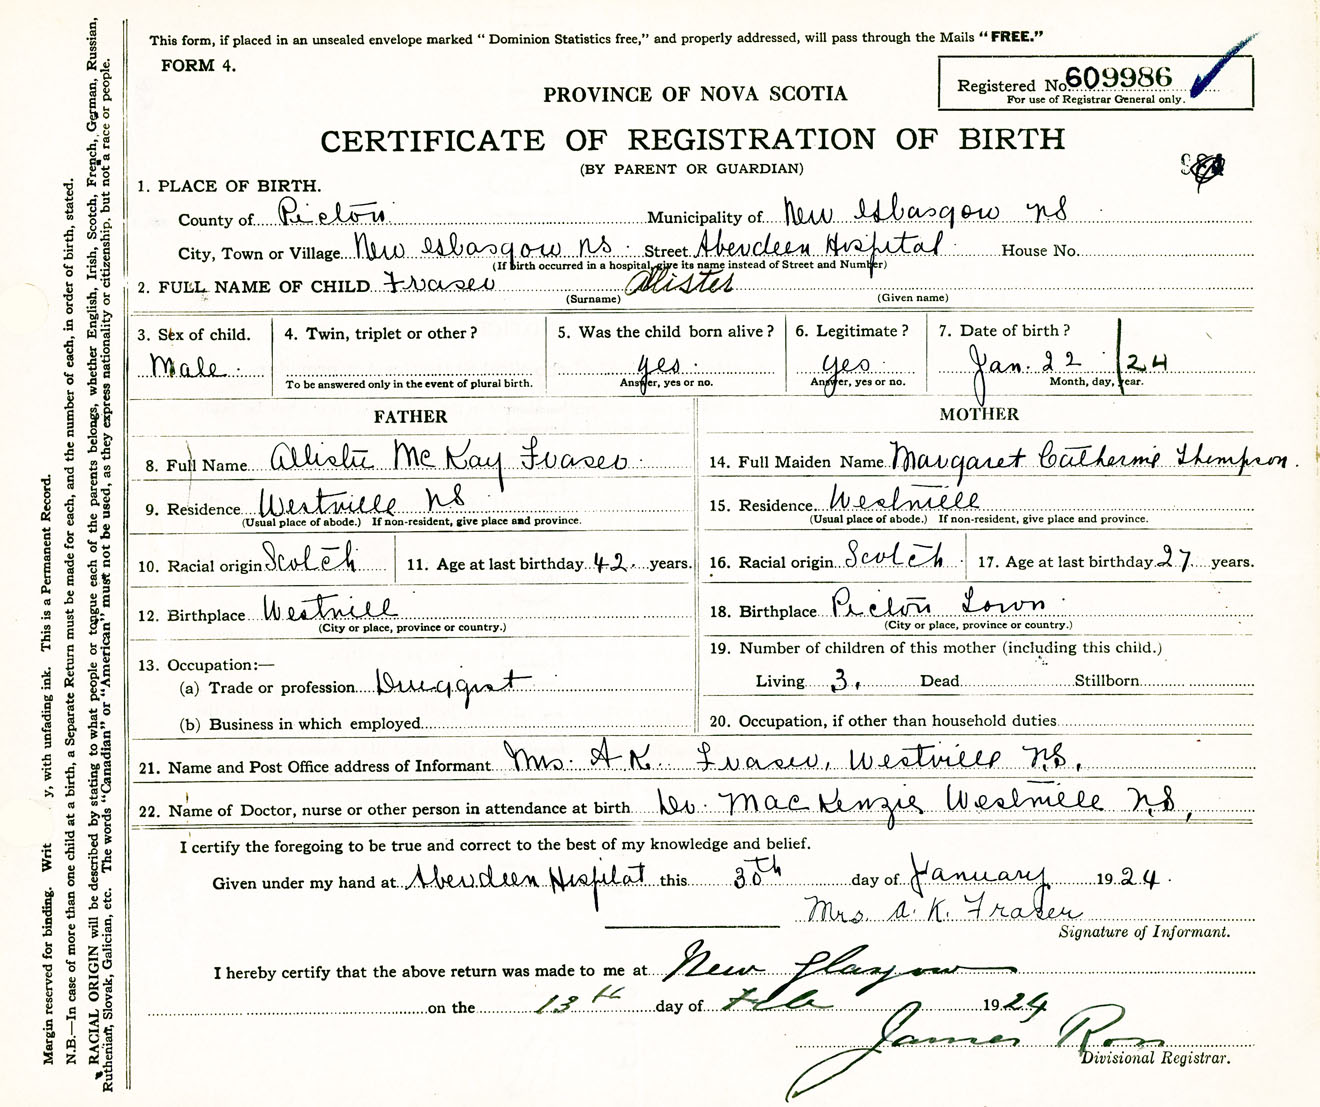 This form, if placed in an unsealed envelope marked " Dominion Statistics free," and properly addressed, will pass through the Mails " FREE."
FORM 4.
Registered No. 609986
For use of Registrar General only.
PROVINCE OF NOVA SCOTIA
CERTIFICATE OF REGISTRATION OF BIRTH
(BY PARENT OR GUARDIAN)
1. PLACE OF BIRTH.
County of Pictou Municipality of New Glasgow NS
City, Town or Village New Glasgow NS. Street Aberdeen Hospital House No.
(If birth occurred in a hospital, give its name instead of Street and Number)
2. FULL NAME OF CHILD Fraser Allister
(Surname) (Given name)
3. Sex of child. 4. Twin, triplet or other? 5. Was the child born alive? 6. Legitimate? 7. Date of birth?
Male. yes. yes Jan. 22 24
To be answered only in the event of plural birth. Answer, yes or no. Answer, yes or no. Month, day, year.
FATHER MOTHER
8. Full Name Allister McKay Fraser 14. Full Maiden Name Margaret Catherine Thompson.
9. Residence Westville NS 15. Residence Westville
(Usual place of abode.) If non-resident, give place and province. (Usual place of abode.) If non-resident, give place and province.
10. Racial origin Scotch 11. Age at last birthday 42 years. 16. Racial origin Scotch 17. Age at last birthday 27 years.
12. Birthplace Westville 18. Birthplace Pictou Town
(City or place, province or country.) (City or place, province or country.)
13. Occupation:— 19. Number of children of this mother (including this child.)
(a) Trade or profession Druggist Living 3. Dead Stillborn
(b) Business in which employed 20. Occupation, if other than household duties
21. Name and Post Office address of Informant Mrs. A K. Fraser, Westville N.S.
22. Name of Doctor, nurse or other person in attendance at birth Dr. MacKenzie Westville N.S.
I certify the foregoing to be true and correct to the best of my knowledge and belief.
Given under my hand at Aberdeen Hospital this 30th day of January 1924.
Mrs. A. K. Fraser
Signature of Informant.
I hereby certify that the above return was made to me at New Glasgow
on the 13th day of Feb 1924
James Ross
Divisional Registrar.
Margin reserved for binding. Writ y, with unfading ink. This is a Permanent Record.
N.B.—In case of more than one child at a birth, a Separate Return must be made for each, and the number of each, in order of birth, stated.
RACIAL ORIGIN will be described by stating to what people or tongue each of the parents belongs, whether English, Irish, Scotch, French, German, Russian,
Ruthenian, Slovak, Galician, etc. The words "Canadian" or "American" must not be used, as they express nationality or citizenship, but not a race or people.